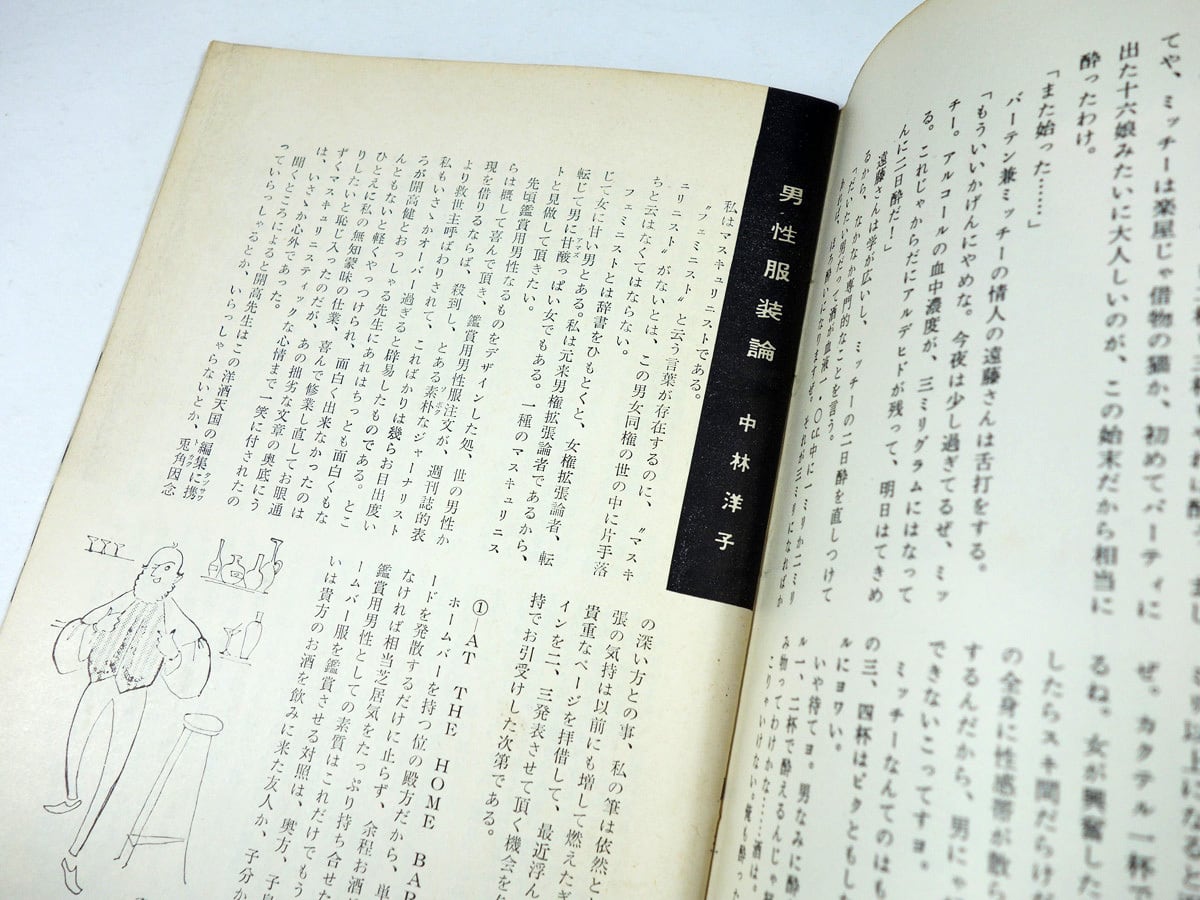 てや、ミッチーは楽屋じゃ借物の猫か、初めてパーティに
出た十六娘みたいに大人しいのが、この始末だから相当に
酔ったわけ。
「また始った……」
バーテン兼ミッチーの情人の遠藤さんは舌打をする。
「もういいかげんにやめな。今夜は少し過ぎてるぜ、ミッ
チー。アルコールの血中濃度が、三ミリグラムにはなって
る。これじゃからだにアルデヒドが残って、明日はてきめ
んに二日酔だ！」
遠藤さんは学が広いし、ミッチーの二日酔を直しつけて
るから、なかなか専門的なことを言う。
ぜ。カクテル一杯で
るね。女が興奮した
したらスキ間だらけだ
の全身に性感帯が散ら
するんだから、男にゃ
できないこってすヨ。
ミッチーなんてのはも
の三、四杯はビクともし
ルにヨワい。
いや待てヨ。男なみに酔
ル一、二杯で酔えるんじゃ
み物ってわけかな……酒は。
男性服装論
中林洋子
私はマスキュリニストである。
〝フェミニスト〟と云う言葉が存在するのに、〝マスキ
ュリニスト〟がないとは、この男女同権の世の中に片手落
ちと云はなくてはならない。
フェミニストとは辞書をひもとくと、女権拡張論者、転
じて女に甘い男とある。私は元来男権拡張論者であるから、
転じて男に甘酸っぱい女でもある。一種のマスキュリニス
トと見做して頂きたい。
先頃鑑賞用男性なるものをデザインした処、世の男性か
らは概して喜んで頂き、鑑賞用男性服注文が、週刊誌的表
現を借りるならば、殺到し、とある素朴なジャーナリスト
より救世主呼ばわりされて、こればかりは幾らお目出度い
私もいさゝかオーバー過ぎると辟易したものである。とこ
ろが開高健とおっしゃる先生にあれはちっとも面白くもな
んともないと軽くやっつけられ、面白く出来なかったのは
ひとえに私の無知蒙昧の仕業、喜んで修業し直してお眼通
りしたいと恥じ入ったのだが、あの拙劣な文章の奥底にう
ずくマスキュリニスティックな心情まで一笑に付されたの
は、いさゝか心外であった。
聞くところによると開高先生はこの洋酒天国の編集に携
っていらっしゃるとか、いらっしゃらないとか、兎角因念
の深い方との事、私の筆は依然と
張の気持は以前にも増して燃えたぎ
貴重なページを拝借して、最近浮ん
インを二、三発表させて頂く機会を
持でお引受けした次第である。
①—AT THE HOME BAR
ホームバーを持つ位の殿方だから、単
ードを発散するだけに止らず、余程お酒
なければ相当芝居気をたっぷり持ち合せた
鑑賞用男性としての素質はこれだけでもう
ームバー服を鑑賞させる対照は、奥方、子
いは貴方のお酒を飲みに来た友人か、子分か